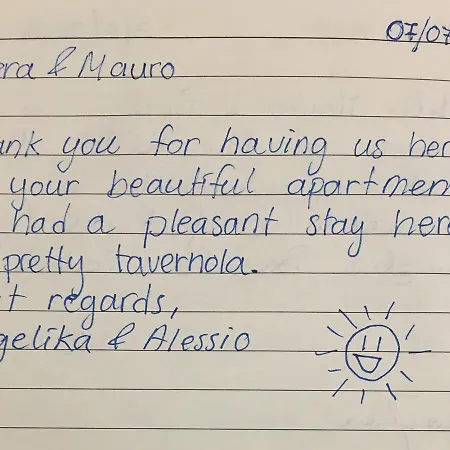 07/07
era & Mauro
ank you for having us her
your beautiful apartmen
had a pleasant stay her
pretty tavernola.
t regards,
gelika & Alessio